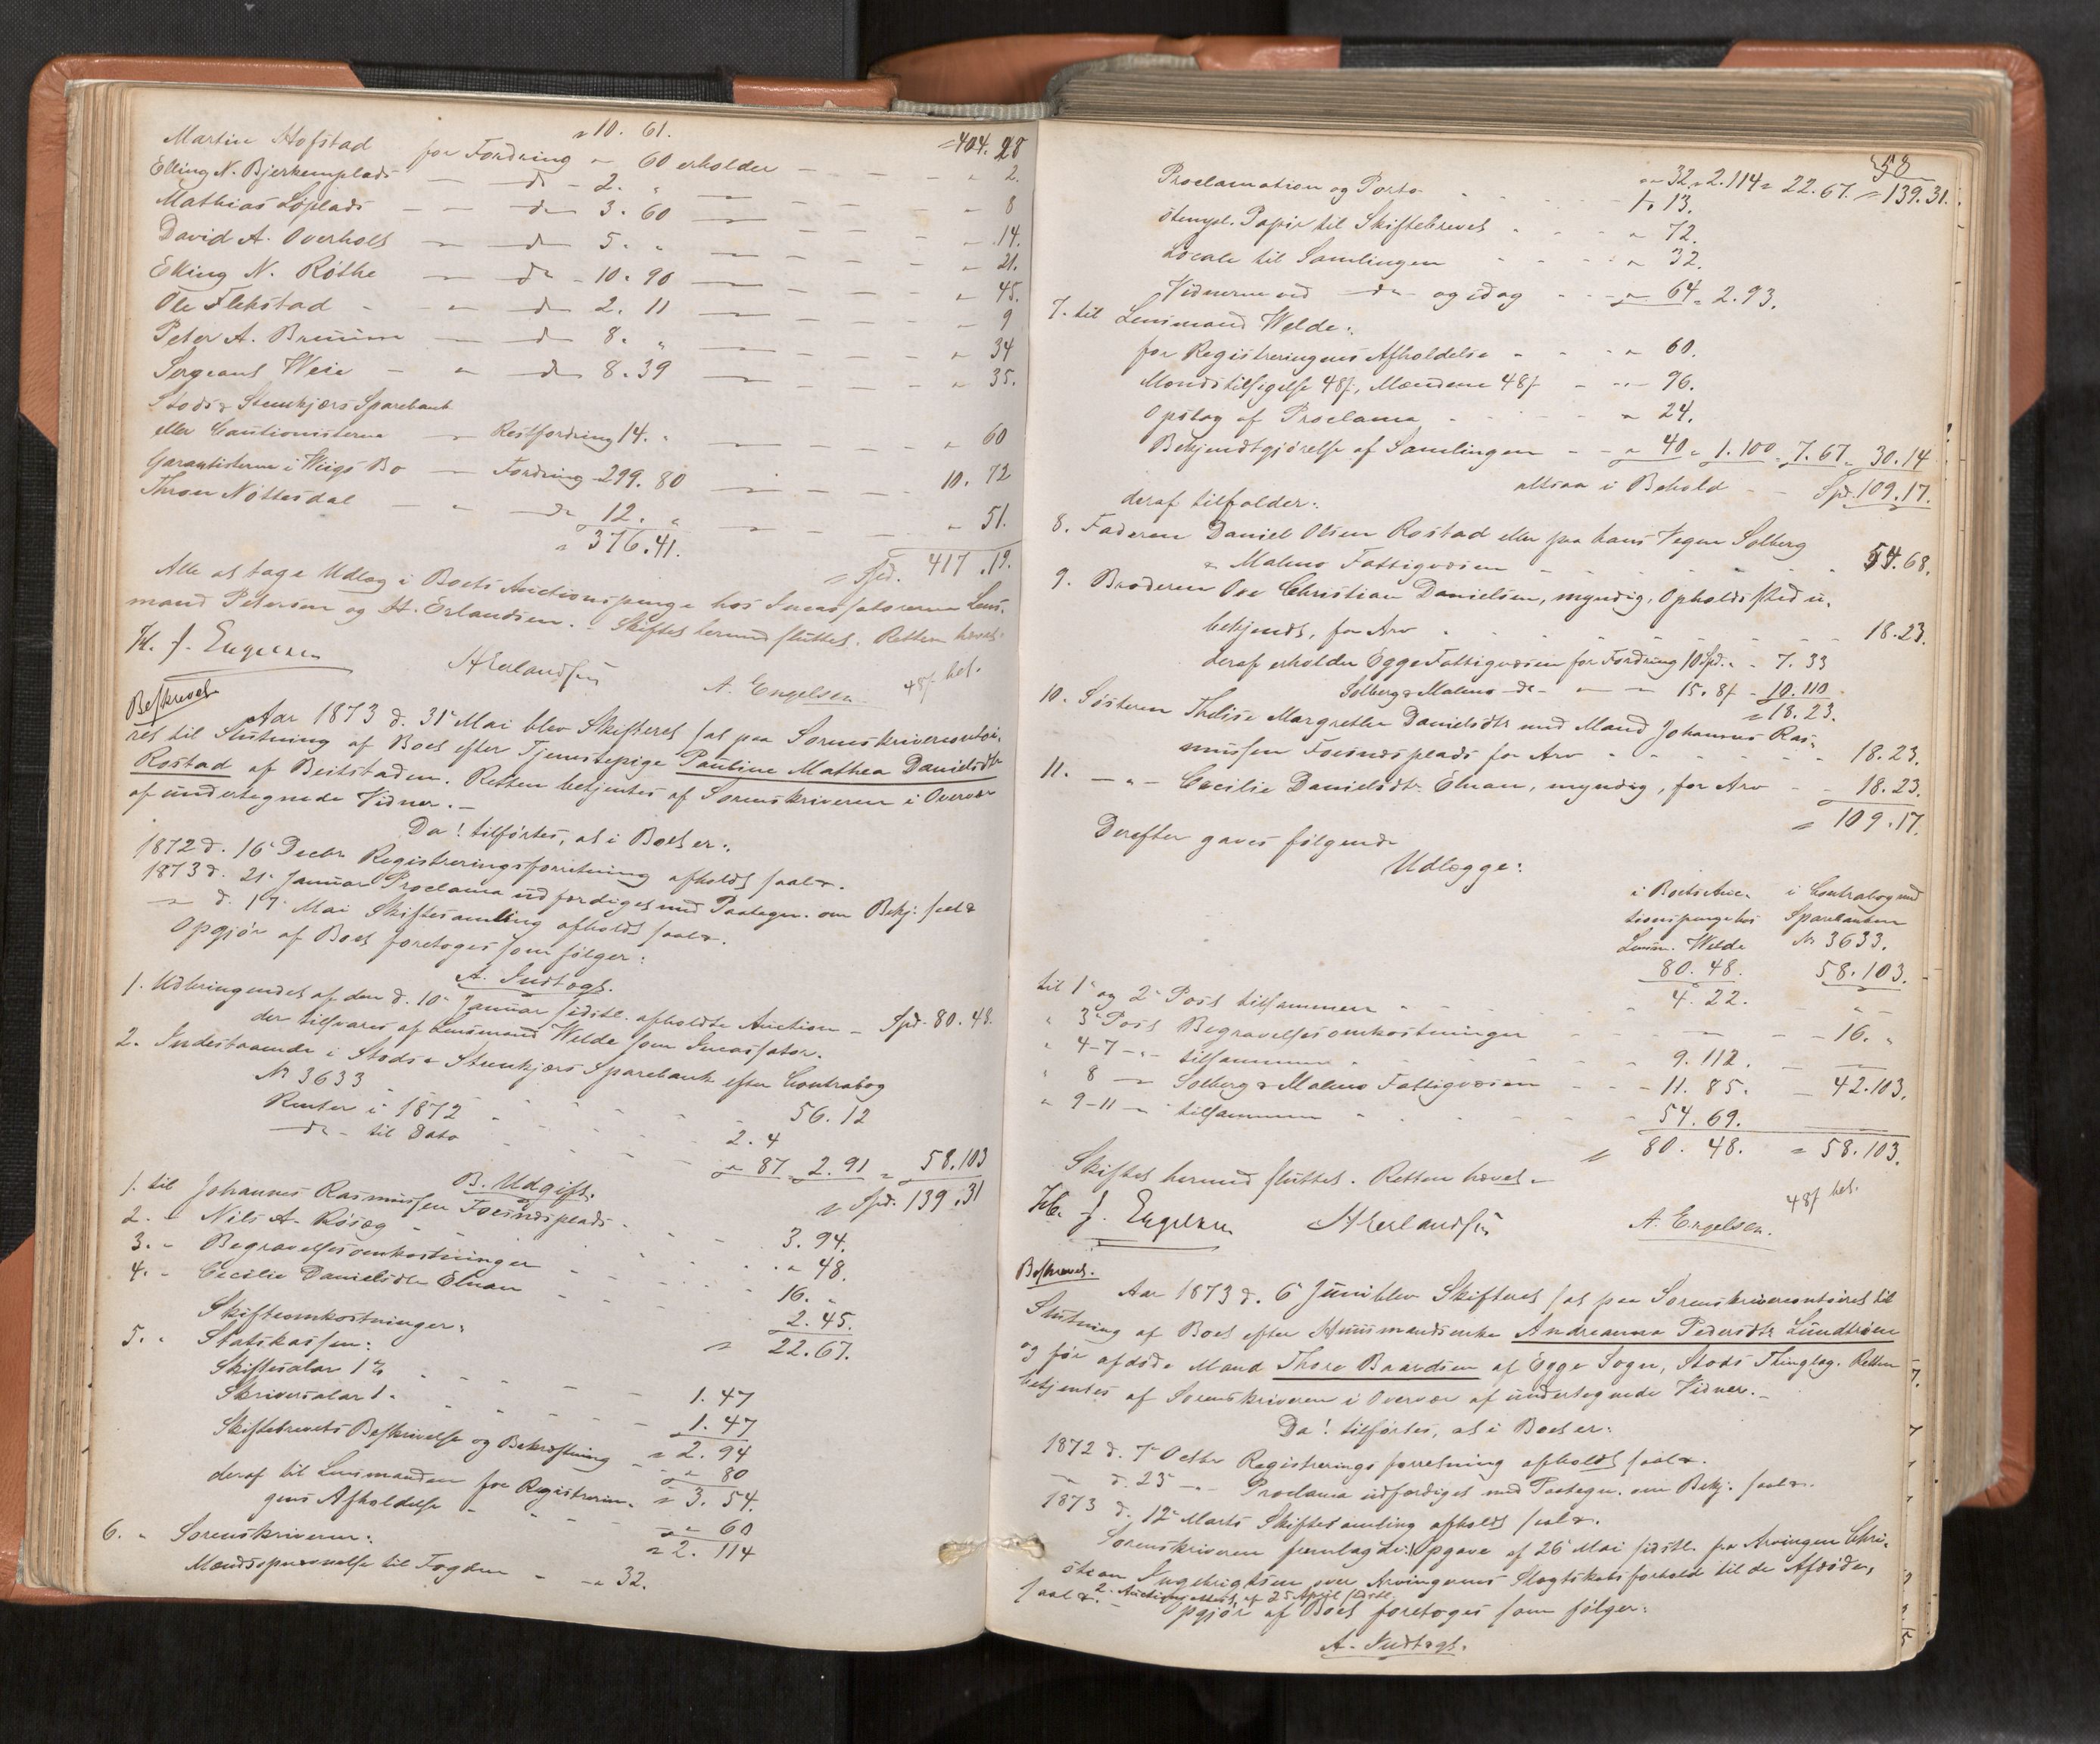 " 10. 61. = 404. 28
Martin Hofstad for Fordring " 60 erholder - - - " 2.
Elling N. Bjerkemplads - do - 2. " - - - " 8
Mathias Løplads - do 3. 60 - - - " 14.
David A. Overholt - do 5. " - - - " 21.
Elling N. Røthe - do - 10. 90 - - - " 45.
Ole Flekstad - do 2. 11 - - - " 9
Peter A. Bruum - do 8. " - - - " 34
Sergeant Weie - do 8. 39 - - - " 35.
Stods & Stenkjærs Sparebank
eller Cautionisterne - Restfordring 14. " - - - " 60
Garantisterne i Wiigs Bo - Fordring 299. 80 - - - 10. 72
Thron Nøttesdal - do 12. " - - - " 51.
" 376. 41. = Spd. 417. 19.
Alle at tage Udlæg i Boets Auctionspenge hos Incassatorerne Lens-
mand Petersen og H. Erlandsen. - Skiftet hermed sluttet. Retten hævet.
Kl. J. Engelsen
HErlandsen A. Engelsen 48ß bet.
Beskrevet
Aar 1873 d. 31te Mai blev Skifteret sat paa Sorenskrivercontoi-
ret til Slutning af Boet efter Tjenestepige Pauline Mathea Danielsdtr
Rostad af Beitstaden. Retten betjentes af Sorenskriveren i Overvær
af undertegnede Vidner. -
Da! tilførtes, at i Boet er:
1872 d. 16de Decbr Registreringsforretning afholdt saal.
1873 d. 21de Januar Proclama udfærdiget med Paategn. om Bekj. saal.
" d. 17de Mai Skiftesamling afholdt saal.
Opgjør af Boet foretoges som følger:
A. Indtægt.
1. Udbringendet af den d. 10de Januar sidstl. afholdte Auction - Spd. 80. 48.
der tilsvares af Lensmand Welde som Incassator.
2. Indestaaende i Stods & Stenkjærs Sparebank efter Contrabog
No 3633 - - - 56. 12
Renter i 1872 - - - 2. 4
- do - til Dato - - - " 87 = 2. 91 = 58. 103
= Spd. 139. 31
B. Udgift.
1. til Johannes Rasmussen Foesnesplads - - - 3. 94.
2. " Nils A. Røsæg - - - " 48.
3. " Begravelsesomkostninger - - - 16. "
4. " Cecilie Danielsdtr Elnan - - - 2. 45.
= 22. 67.
Skifteomkostninger:
5. " Statskassen:
Skiftesalar 1% - - - 1. 47
Skriversalar 1 " - - - 1. 47
" 2. 94
Skiftebrevets Beskrivelse og Bekræftning " 80
" 3. 54.
deraf til Lensmanden for Registrerin-
gens Afholdelse - - - " 60
" 2. 114
6. " Sorenskriveren:
Mændsopnævnelse til Fogden - " 32.
58
" 32. " 2. 114 = 22. 67. = 139. 31.
Proclamation og Porto - - - 1. 13.
stempl. Papir til Skiftebrevet - - - " 72.
Locale til Samlingen - - - " 32.
Vidnerne ved - do - og idag - - - " 64 = 2. 93.
7. til Lensmand Welde:
for Registreringens Afholdelse - - - " 60.
Mændstilsigelse 48ß, Mændene 48ß - - - 96.
Opslag af Proclama - - - " 24.
Bekjendtgjørelse af Samlingen - - " 40 = 1. 100 = 7. 67 = 30. 14
altsaa i Behold - - Spd. 109. 17.
deraf tilfalder:
8. Faderen Daniel Olsen Rostad eller paa hans Vegne Solberg
& Malmo Fattigvæsen - - - 54. 68.
9. Broderen Ove Christian Danielsen, myndig, Opholdssted u-
bekjendt, for Arv - - - 18. 23.
deraf erholder Egge Fattigvæsen for Fordring 10 Spd. " - 7. 33
Solberg & Malmo - do - " - 15. 8ß - 10. 110
= 18. 23.
10. Søsteren Thalise Margrethe Danielsdtr med Mand Johannes Ras-
mussen Foesnesplads for Arv - - - 18. 23.
11. - " - Cecilie Danielsdtr Elnan, myndig, for Arv - - 18. 23.
= 109. 17.
Derefter gaves følgende
Udlægge:
i Boets Auc- i Contrabog med
tionspenge hos Sparebanken
Lensm. Welde No 3633.
80. 48. 58. 103.
til 1ste og 2den Post tilsammen - - - 4. 22. "
" 3die Post Begravelsesomkostninger - - - 16. "
" 4-7 - " - tilsammen - - - 9. 112. -
" 8 - " Solberg & Malmo Fattigvæsen - - - 11. 85. - 42. 103.
" 9-11 - " tilsammen - - - 54. 69.
= 80. 48. = 58. 103.
Skiftet hermed sluttet. Retten hævet. -
Kl. J. Engelsen HErlandsen A. Engelsen. 48ß bet.
Beskrevet.
Aar 1873 d. 6te Juni blev Skifteret sat paa Sorenskrivercontoiret til
Slutning af Boet efter Huusmandsenke Andreanna Pedersdtr Lundtrøen
og før afdøde Mand Thore Baardsen af Egge Sogn, Stods Thinglag. Retten
betjentes af Sorenskriveren i Overvær af undertegnede Vidner. -
Da! tilførtes, at i Boet er:
1872 d. 7de Octbr Registreringsforretning afholdt saal.
- " - d. 23de - " - Proclama udfærdiget med Paategn. om Bekj. saal.
1873 d. 12te Marts Skiftesamling afholdt saal.
Sorenskriveren fremlagde: 1, Opgave af 26de Mai sidstl. fra Arvingen Chri-
stian Ingebrigtsen over Arvingernes Slægtskabsforhold til de Afdøde,
saal. 2. Auctionsattest af 25 April sidstl.
Opgjør af Boet foretoges som følger:
A. Indtægt.